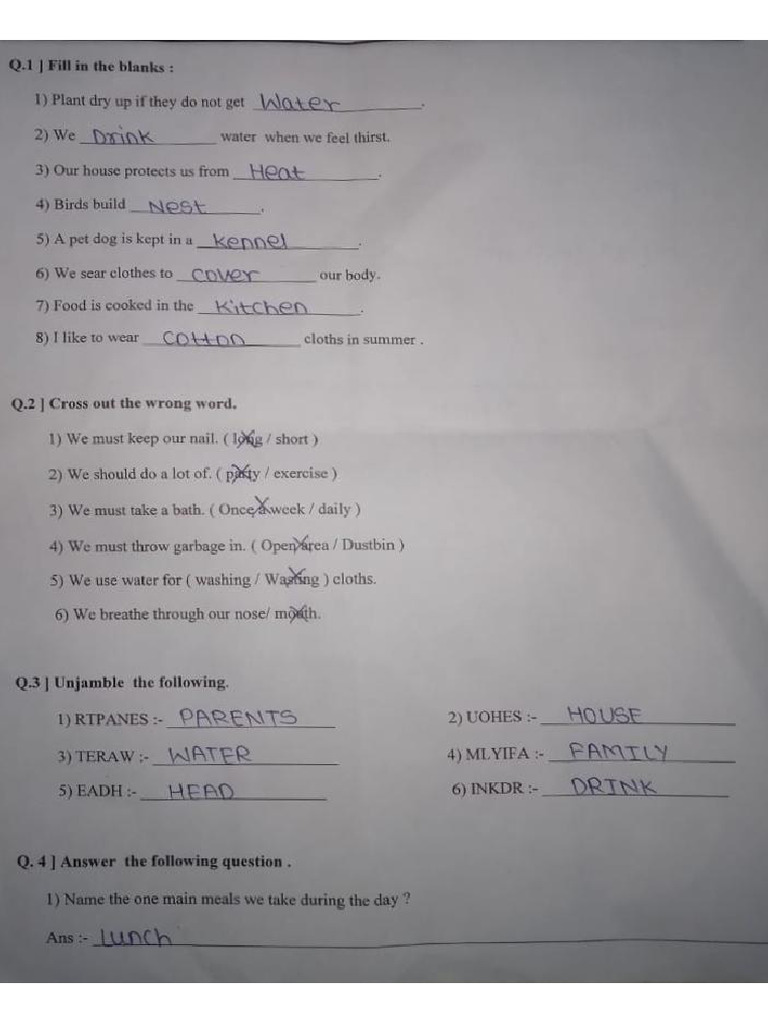 Q.1 ] Fill in the blanks :
1) Plant dry up if they do not get Water .
2) We Drink water when we feel thirst.
3) Our house protects us from Heat .
4) Birds build Nest .
5) A pet dog is kept in a kennel .
6) We sear clothes to cover our body.
7) Food is cooked in the Kitchen .
8) I like to wear COtton cloths in summer .
Q.2 ] Cross out the wrong word.
1) We must keep our nail. ( long / short )
2) We should do a lot of. ( party / exercise )
3) We must take a bath. ( Once a week / daily )
4) We must throw garbage in. ( Open area / Dustbin )
5) We use water for ( washing / Wasting ) cloths.
6) We breathe through our nose/ mouth.
Q.3 ] Unjamble the following.
1) RTPANES :- PARENTS 2) UOHES :- HOUSE
3) TERAW :- WATER 4) MLYIFA :- FAMILY
5) EADH :- HEAD 6) INKDR :- DRINK
Q. 4 ] Answer the following question .
1) Name the one main meals we take during the day ?
Ans :- Lunch